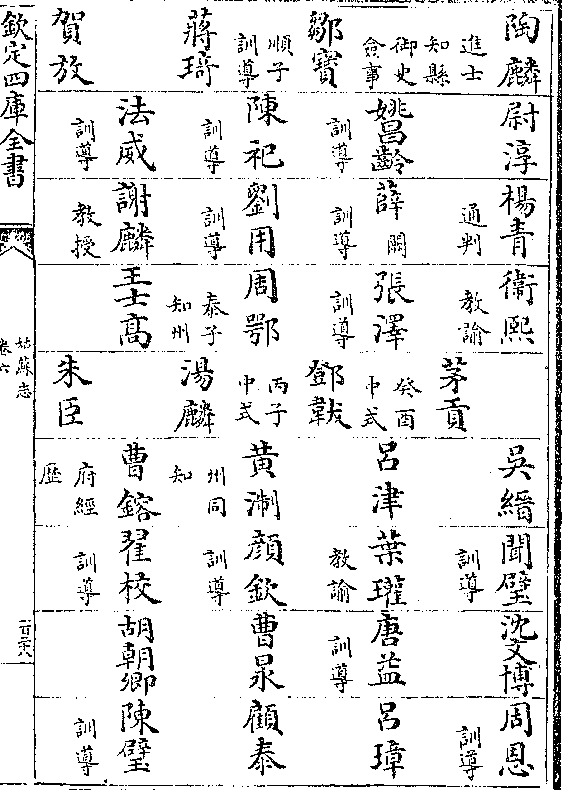 陶麟 尉淳 楊青 衛熙 吳縉 聞璧 沈文博 周恩
進士 知縣 御史 僉事 通判 教諭 茅貢 訓導 訓導
鄒寶 姚昌齡 薛闕 張澤 鄧韍 呂津 葉瓘 唐益 呂璋
訓導 訓導 訓導 癸酉中式 教諭 訓導
順子訓導 陳祀 劉用 周鄂 丙子中式 黃淛 顔欽 曹泉 顧泰
蔣琦 訓導 訓導 泰子知州 湯麟 州同知 訓導
賀放 法威 謝麟 王士高 朱臣 曹鎔 翟校 胡朝卿 陳璧
訓導 教授 府經歷 訓導 訓導
欽定四庫全書
姑蘇志
卷六